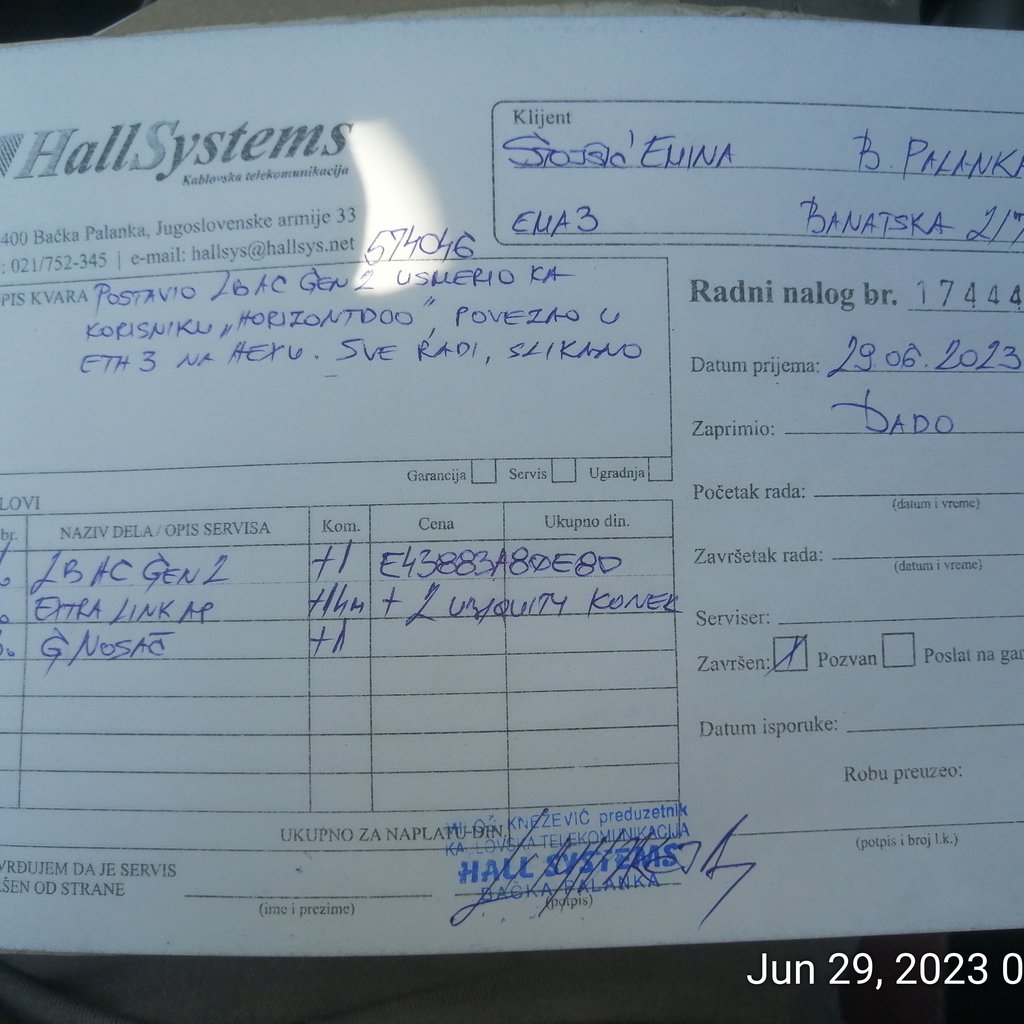 HallSystems
Kablovska telekomunikacija
400 Bačka Palanka, Jugoslovenske armije 33
: 021/752-345 | e-mail: hallsys@hallsys.net
574046
Klijent
EMINA B. PALANKA
EMA3 BANATSKA 2/7
PIS KVARA POSTAVIO LBAC GEN 2 USMERIO KA
KORISNIKU „HORIZONTDOO", POVEZAO U
ETH 3 NA HEXU. SVE RADI, SLIKANO
Garancija Servis Ugradnja
Radni nalog br. 17444
Datum prijema: 29.06.2023
Zaprimio: ĐADO
Početak rada:
(datum i vreme)
Završetak rada:
(datum i vreme)
Serviser:
Završen: Pozvan Poslat na gar
Datum isporuke:
Robu preuzeo:
(potpis i broj l.k.)
LOVI
br. NAZIV DELA / OPIS SERVISA Kom. Cena Ukupno din.
LBAC GEN 2 +1 E43883A8DE8D
EXTRA LINK AP +14m + 2 UBIQUITY KONEK
G NOSAČ +1
UKUPNO ZA NAPLATU DIN.
MILOŠ KNEŽEVIĆ preduzetnik
KABLOVSKA TELEKOMUNIKACIJA
HALL SYSTEMS
BAČKA PALANKA
VRĐUJEM DA JE SERVIS
ŠEN OD STRANE
(ime i prezime)
(potpis)
Jun 29, 2023 0